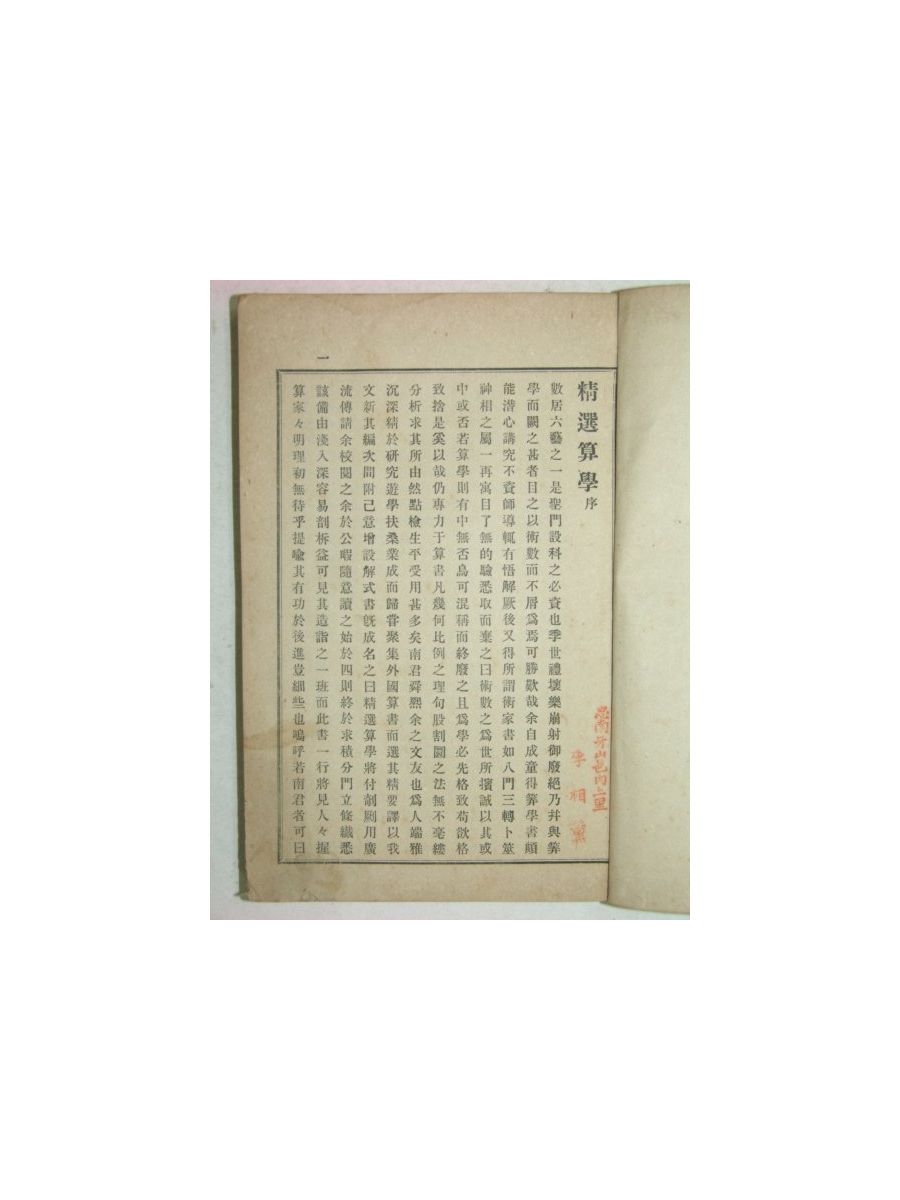 精選算學序
數居六藝之一是聖門設科之必資也季世禮壞樂崩射御廢絕乃幷與筭
學而闕之甚者目之以術數而不屑爲焉可勝歎哉余自成童得筭學書頗
能潛心講究不資師導輒有悟解厥後又得所謂術家書如八門三轉卜筮
神相之屬一再寓目了無的驗悉取而棄之曰術數之爲世所擯誠以其或
中或否若算學則有中無否烏可混稱而終廢之且爲學必先格致苟欲格
致捨是奚以哉仍專力于算書凡幾何比例之理句股割圜之法無不毫縷
分析求其所由然點檢生平受用甚多矣南君舜熙余之文友也爲人端雅
沉深精於研究遊學扶桑業成而歸嘗聚集外國算書而選其精要譯以我
文新其編次間附己意增設解式書旣成名之曰精選算學將付剞劂用廣
流傳請余校閱之余於公暇隨意讀之始於四則終於求積分門立條纖悉
該備由淺入深容易剖柝益可見其造詣之一班而此書一行將見人々握
算家々明理初無待乎提喩其有功於後進豈細些也嗚呼若南君者可曰
一
忠南牙山邑內上里
李相